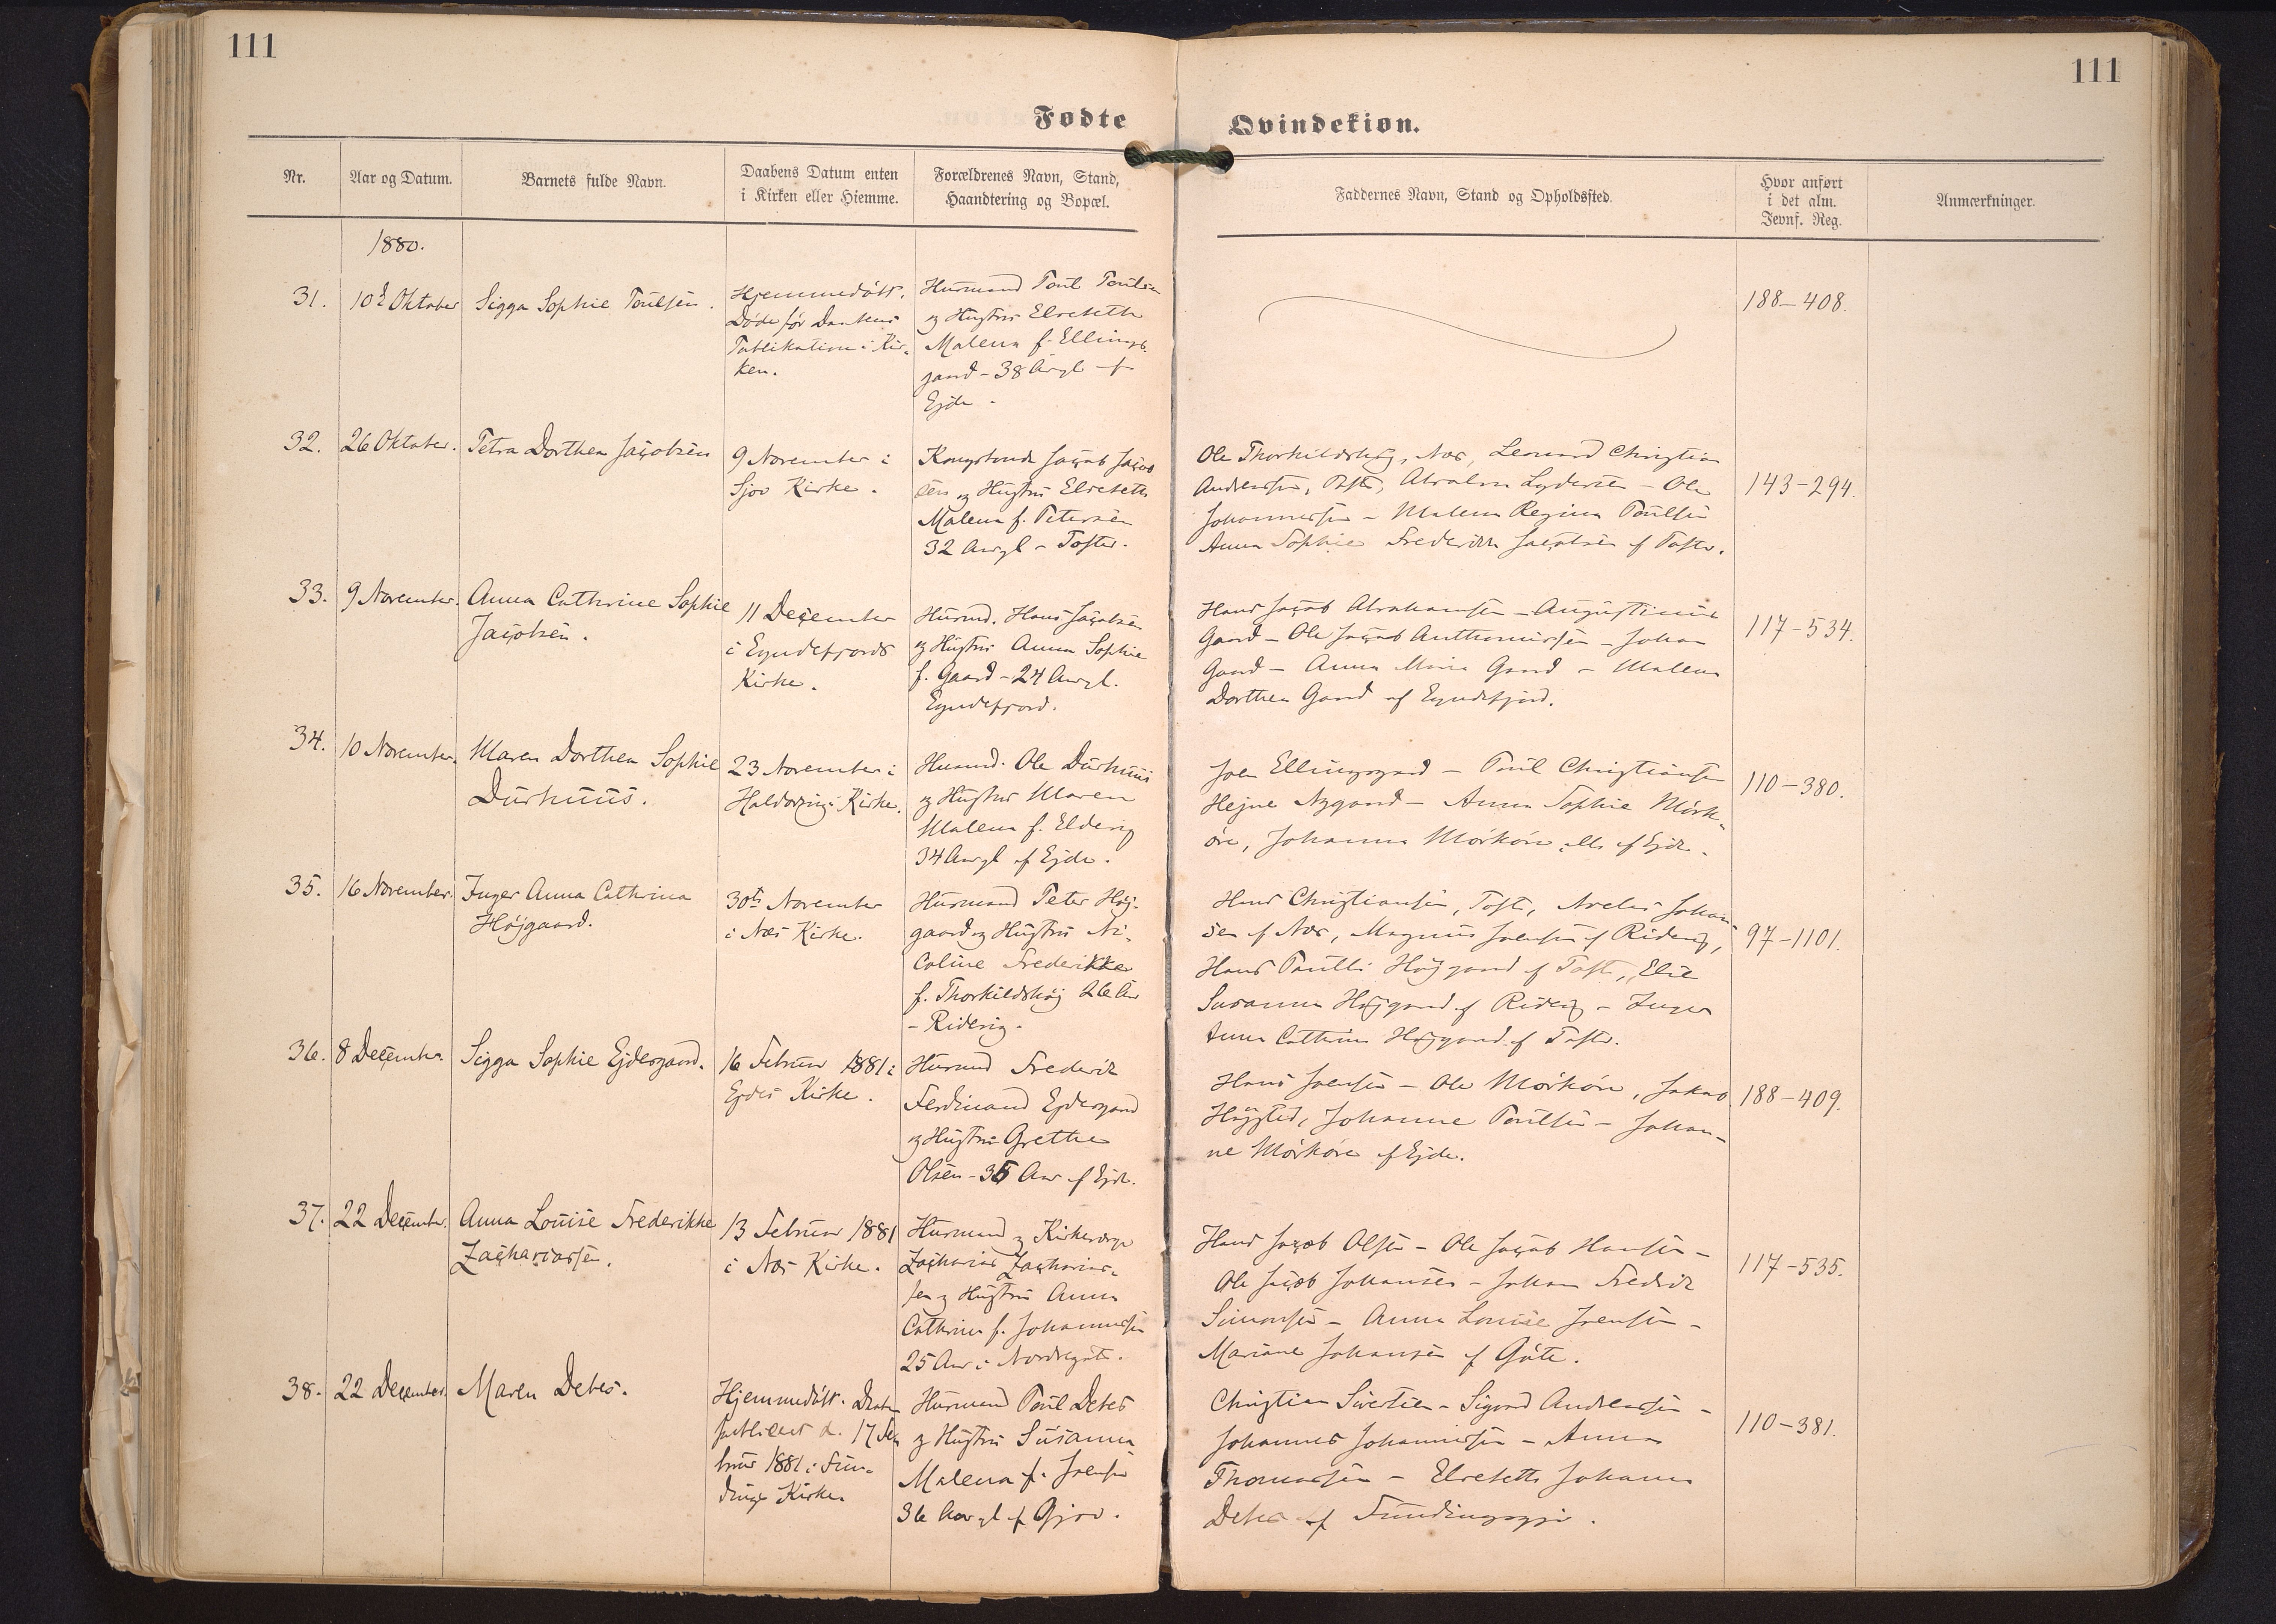 111
111
Fødte
Qvindekiøn.
Nr.
Aar og Datum.
Barnets fulde Navn.
Daabens Datum enten
i Kirken eller Hiemme.
Forældrenes Navn, Stand,
Haandtering og Bopæl.
Faddernes Navn, Stand og Opholdssted.
Hvor anført
i det alm.
Jevnf. Reg.
Anmærkninger.
1880.
31.
10 Oktober
Sigga Sophie Poulsen.
Hjemmedöbt.
Døde før Daabens
Publikation i Kir-
ken.
Husmand Poul Poulsen
og Hustru Elsebeth
Malena f. Ellings-
gaard - 38 Aar gl. af
Ejde.
188-408.
32.
26 Oktober.
Petra Dorthea Jacobsen
9 November i
Sjov Kirke.
Kongsbonde Jacob Jacob
sen og Hustru Elsebeth
Malena f. Petersen
32 Aar gl - Tofter.
Ole Thorkildshøj, Nes, Leonard Christian
Andreassen, Abraham Lydersen - Ole
Johannessen - Malena Regina Poulsen
Anna Sophie Frederikke Jacobsen af Tofte.
143-294.
33.
9 November.
Anna Cathrine Sophie
Jacobsen.
11 December
i Eyndefjords
Kirke.
Husmd. Hans Jacobsen
og Hustru Anna Sophie
f. Gaard - 24 Aar gl.
Eyndefjord.
Hans Jacob Abrahamsen - Augustinus
Gaard - Ole Jacob Anthoniussen - Johan
Gaard - Anna Maria Gaard - Malena
Dorthea Gaard af Eyndefjord.
117-534.
34.
10 November.
Maren Dorthea Sophie
Durhuus.
23 November i
Haldorsvig Kirke.
Husmd. Ole Durhuus
og Hustru Maren
Malena f. Eldevig
34 Aar gl af Ejde.
Joen Ellingsgaard - Poul Christiansen
Hejne Nygaard - Anna Sophie Mörk-
öre, Johanna Mörköre, alle af Ejde.
110-380.
35.
16 November.
Inger Anna Cathrina
Højgaard.
30te November
i Nes Kirke.
Husmand Peter Høj-
gaard og Hustru Ni-
coline Frederikke
f. Thorkildshøj 26 Aar
- Ridevig.
Hans Christiansen, Tofte, Johan
sen af Nes, Magnus Joensen af Ridevig,
Hans Poulli Højgaard af Tofte, Else
Susanna Højgaard af Ridevig - Inger
Anna Cathrina Højgaard af Tofte.
97-1101.
36.
8 December.
Sigga Sophie Ejdesgaard.
16 Februar 1881 i
Ejdes Kirke.
Husmand Frederik
Ferdinand Ejdesgaard
og Hustru Grethe
Olsen - 35 Aar af Ejde.
Hans Joensen - Ole Mörköre, Jakob
Høgsted, Johanne Poulsen - Johan-
ne Mörköre af Ejde.
188-409.
37.
22 December.
Anna Louise Frederikke
Zachariassen.
13 Februar 1881
i Nes Kirke.
Husmand og Kirkeværge
Zacharias Zacharias-
sen og Hustru Anna
Cathrina f. Johannessen
25 Aar i Nordregöte.
Hans Jacob Olsen - Ole Jacob Hansen -
Ole Jacob Johansen - Johan Fredrik
Simonsen - Anna Louise Joensen -
Mariane Johansen af Göte.
117-535.
38.
22 December.
Maren Debes.
Hjemmedöbt. Daaben
publiceret d. 17 Fe-
bruar 1881 i Fun-
dings Kirke.
Husmand Poul Debes
og Hustru Susanna
Malena f. Joensen
36 Aar gl af Gjov.
Christian Sivertsen - Sigvard Andreassen -
Johannes Johannessen - Anna
Thomassen - Elsebeth Johanna
Debes af Fundingsgjov.
110-381.